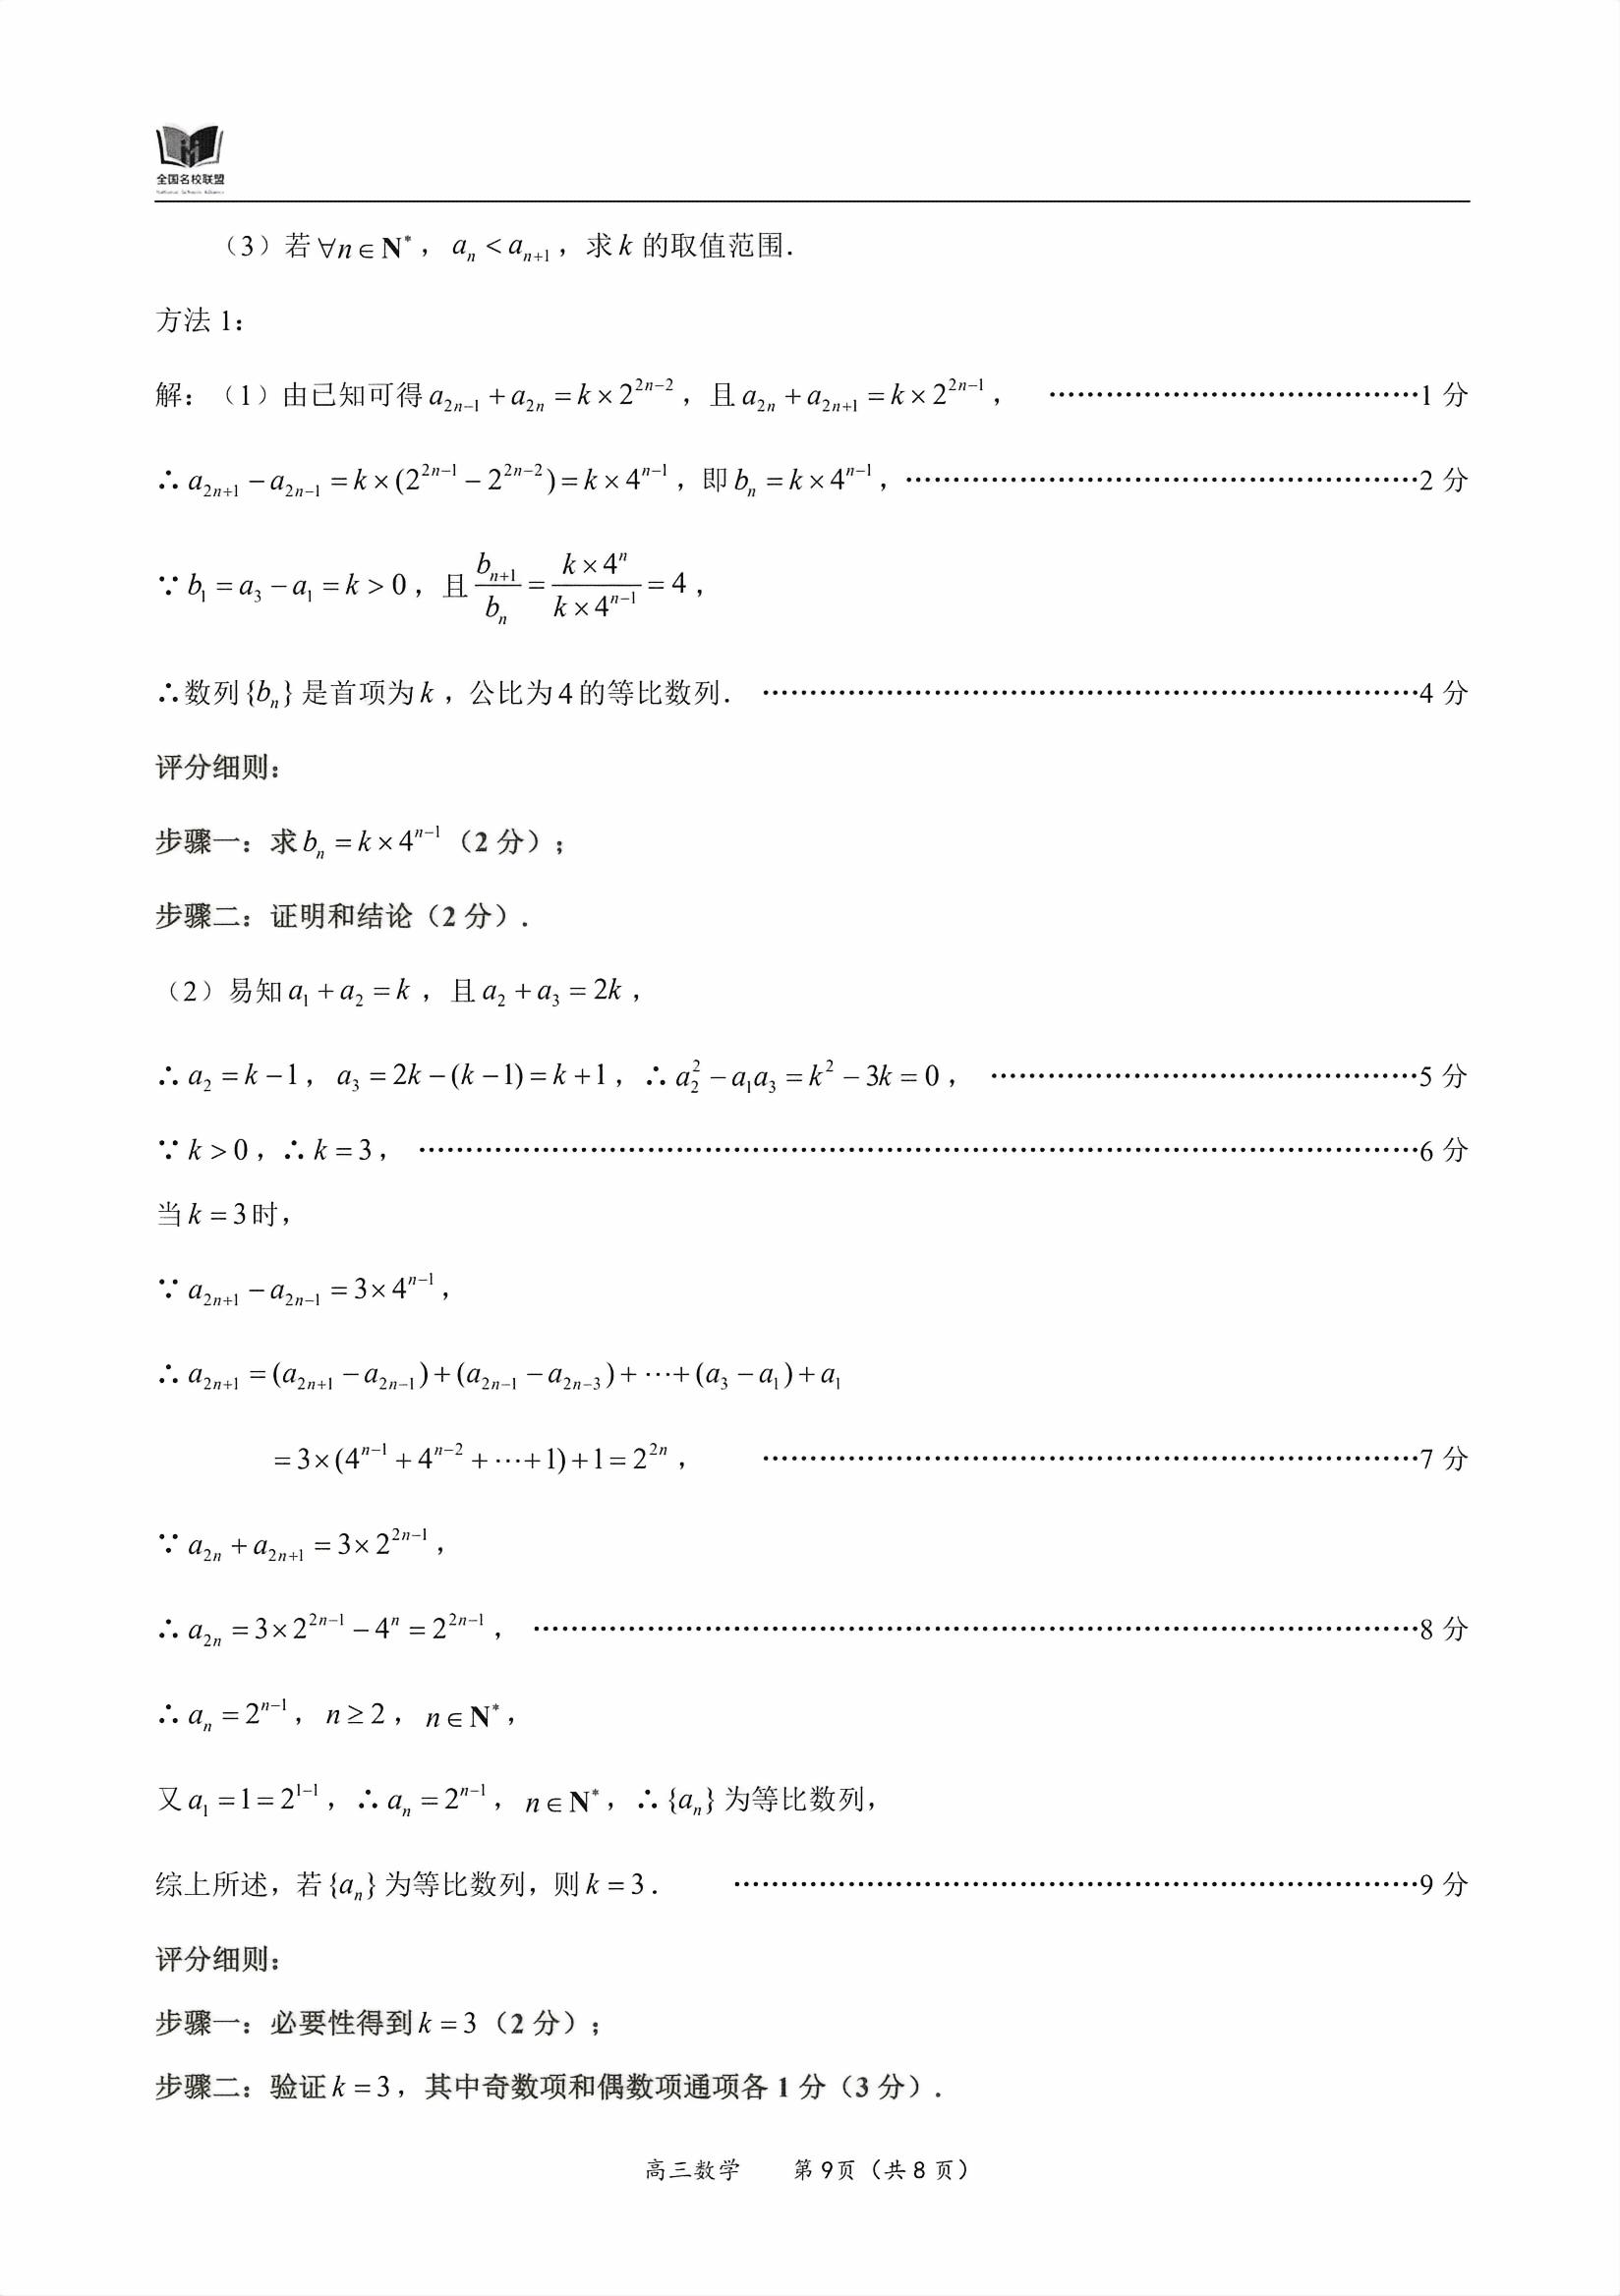 全国名校联盟
National Schools Alliance
（3）若∀n∈N*，aₙ<aₙ₊₁，求k的取值范围．
方法1：
解：（1）由已知可得a₂ₙ₋₁+a₂ₙ=k×2²ⁿ⁻²，且a₂ₙ+a₂ₙ₊₁=k×2²ⁿ⁻¹，……………………………………1分
∴a₂ₙ₊₁−a₂ₙ₋₁=k×(2²ⁿ⁻¹−2²ⁿ⁻²)=k×4ⁿ⁻¹，即bₙ=k×4ⁿ⁻¹，……………………………………2分
∵b₁=a₃−a₁=k>0，且bₙ₊₁/bₙ=(k×4ⁿ)/(k×4ⁿ⁻¹)=4，
∴数列{bₙ}是首项为k，公比为4的等比数列．……………………………………4分
评分细则：
步骤一：求bₙ=k×4ⁿ⁻¹（2分）；
步骤二：证明和结论（2分）．
（2）易知a₁+a₂=k，且a₂+a₃=2k，
∴a₂=k−1，a₃=2k−(k−1)=k+1，∴a₂²−a₁a₃=k²−3k=0，……………………………………5分
∵k>0，∴k=3，……………………………………6分
当k=3时，
∵a₂ₙ₊₁−a₂ₙ₋₁=3×4ⁿ⁻¹，
∴a₂ₙ₊₁=(a₂ₙ₊₁−a₂ₙ₋₁)+(a₂ₙ₋₁−a₂ₙ₋₃)+⋯+(a₃−a₁)+a₁
=3×(4ⁿ⁻¹+4ⁿ⁻²+⋯+1)+1=2²ⁿ，……………………………………7分
∵a₂ₙ+a₂ₙ₊₁=3×2²ⁿ⁻¹，
∴a₂ₙ=3×2²ⁿ⁻¹−4ⁿ=2²ⁿ⁻¹，……………………………………8分
∴aₙ=2ⁿ⁻¹，n≥2，n∈N*，
又a₁=1=2¹⁻¹，∴aₙ=2ⁿ⁻¹，n∈N*，∴{aₙ}为等比数列，
综上所述，若{aₙ}为等比数列，则k=3．……………………………………9分
评分细则：
步骤一：必要性得到k=3（2分）；
步骤二：验证k=3，其中奇数项和偶数项通项各1分（3分）．
高三数学 第9页（共8页）